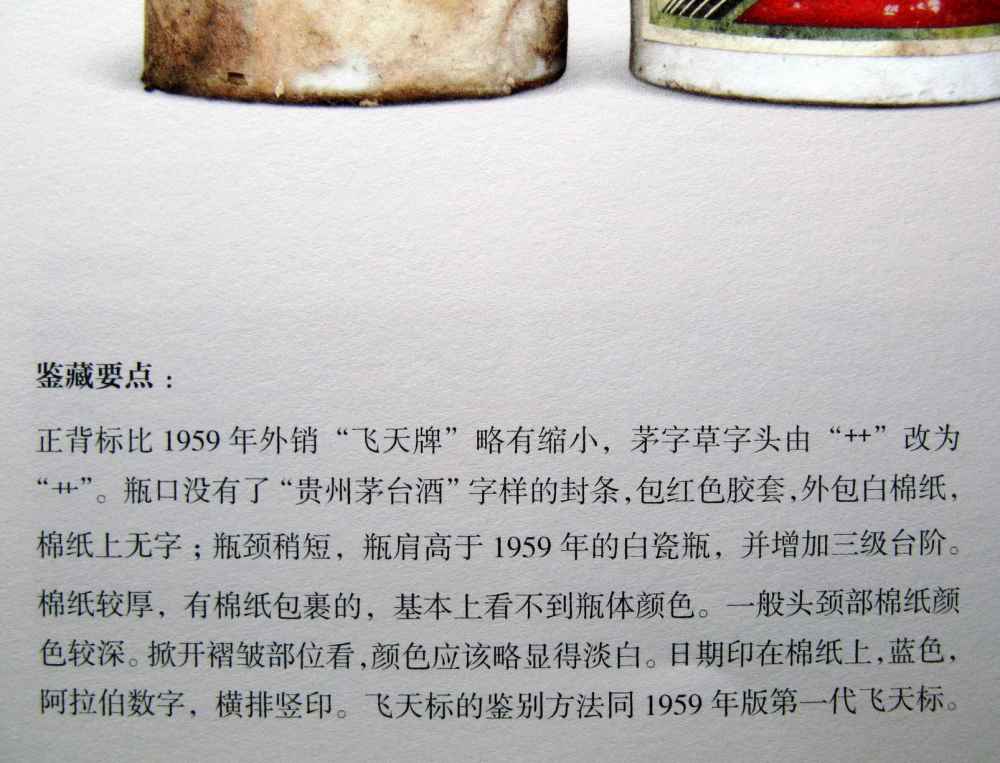 鉴藏要点：
正背标比 1959 年外销“飞天牌”略有缩小，茅字草字头由“++”改为
“艹”。瓶口没有了“贵州茅台酒”字样的封条，包红色胶套，外包白棉纸，
棉纸上无字；瓶颈稍短，瓶肩高于 1959 年的白瓷瓶，并增加三级台阶。
棉纸较厚，有棉纸包裹的，基本上看不到瓶体颜色。一般头颈部棉纸颜
色较深。掀开褶皱部位看，颜色应该略显得淡白。日期印在棉纸上，蓝色，
阿拉伯数字，横排竖印。飞天标的鉴别方法同 1959 年版第一代飞天标。